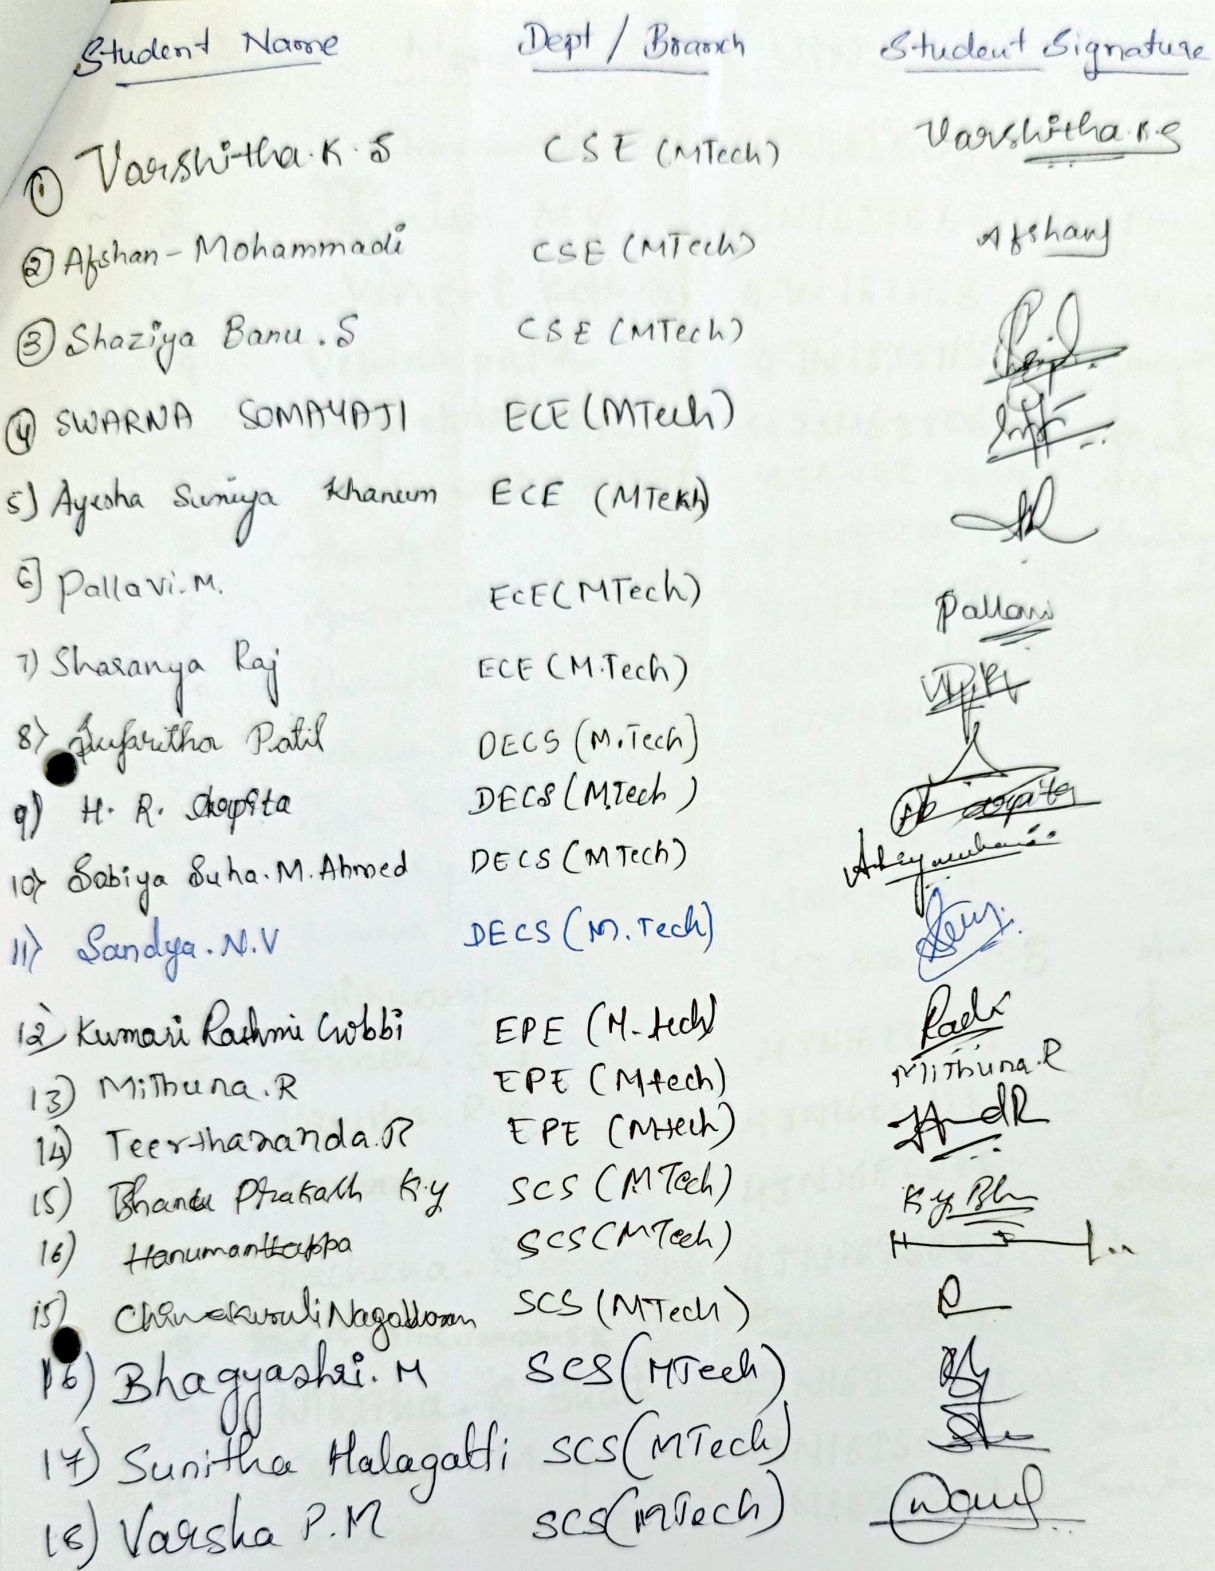 Student Name Dept / Branch Student Signature
① Varshitha.K.S CSE (MTech) Varshitha.K.S
② Afshan - Mohammadi CSE (MTech) Afshan
③ Shaziya Banu.S CSE (MTech)
④ SWARNA SOMAYAJI ECE (MTech)
5) Ayesha Suniya Khanum ECE (MTekh)
6) Pallavi.M. ECE (MTech) Pallavi
7) Sharanya Raj ECE (M.Tech)
8) Patil DECS (M.Tech)
9) H. R. DECS (M.Tech)
10) Sabiya Suha.M.Ahmed DECS (MTech)
11) Sandya.N.V DECS (M.Tech)
12) Kumari Rashmi Gobbi EPE (M.tech)
13) Mithuna.R EPE (Mtech) Mithuna.R
14) Teerthananda.R EPE (Mtech)
15) Bhanu Prakash K.Y SCS (MTech) K.Y
16) Hanumanthappa SCS (MTech)
15) SCS (MTech)
16) Bhagyashri.M SCS (MTech)
17) Sunitha Halagatti SCS (MTech)
18) Varsha P.M SCS (MTech)